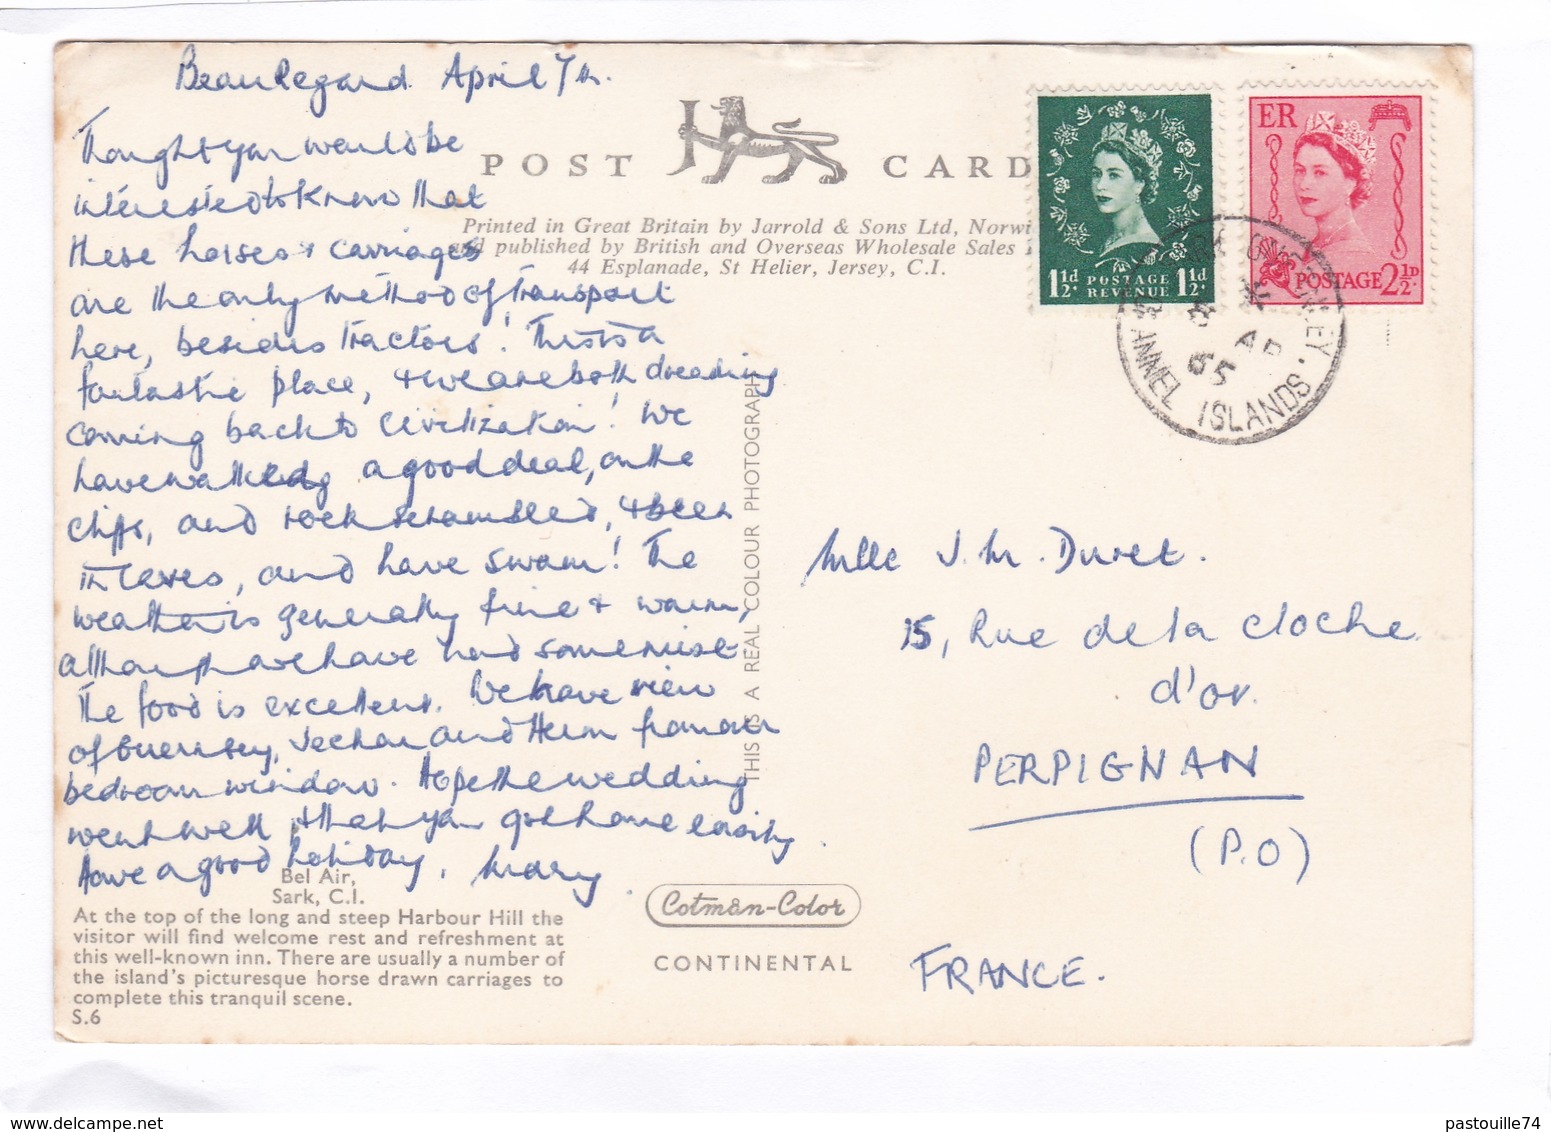 Beau Regard. April 7th.
Thought you would be
interested to know that
these horses + carriages
are the only method of transport
here, besides tractors! This is a
fantastic place, + we are both dreading
coming back to civilization! We
have walked a good deal, on the
cliffs, and rock scrambled, + been
in caves, and have swam! The
weather is generally fine + warm,
although we have had some mist.
The food is excellent. We have view
of Guernsey, Jethou and Herm from our
bedroom window. Hope the wedding
went well, + that you got home easily.
Have a good holiday, Mary.
POST CARD
Printed in Great Britain by Jarrold & Sons Ltd, Norwi
and published by British and Overseas Wholesale Sales
44 Esplanade, St Helier, Jersey, C.I.
1½d POSTAGE REVENUE 1½d
ER
POSTAGE 2½D
GUERNSEY. CHANNEL ISLANDS
AP
65
THIS IS A REAL COLOUR PHOTOGRAPH
Mlle J. M. Duret.
15, Rue de la Cloche
d'or.
PERPIGNAN
(P.O)
FRANCE.
Bel Air,
Sark, C.I.
At the top of the long and steep Harbour Hill the
visitor will find welcome rest and refreshment at
this well-known inn. There are usually a number of
the island's picturesque horse drawn carriages to
complete this tranquil scene.
S.6
Cotman-Color
CONTINENTAL
pastouille74